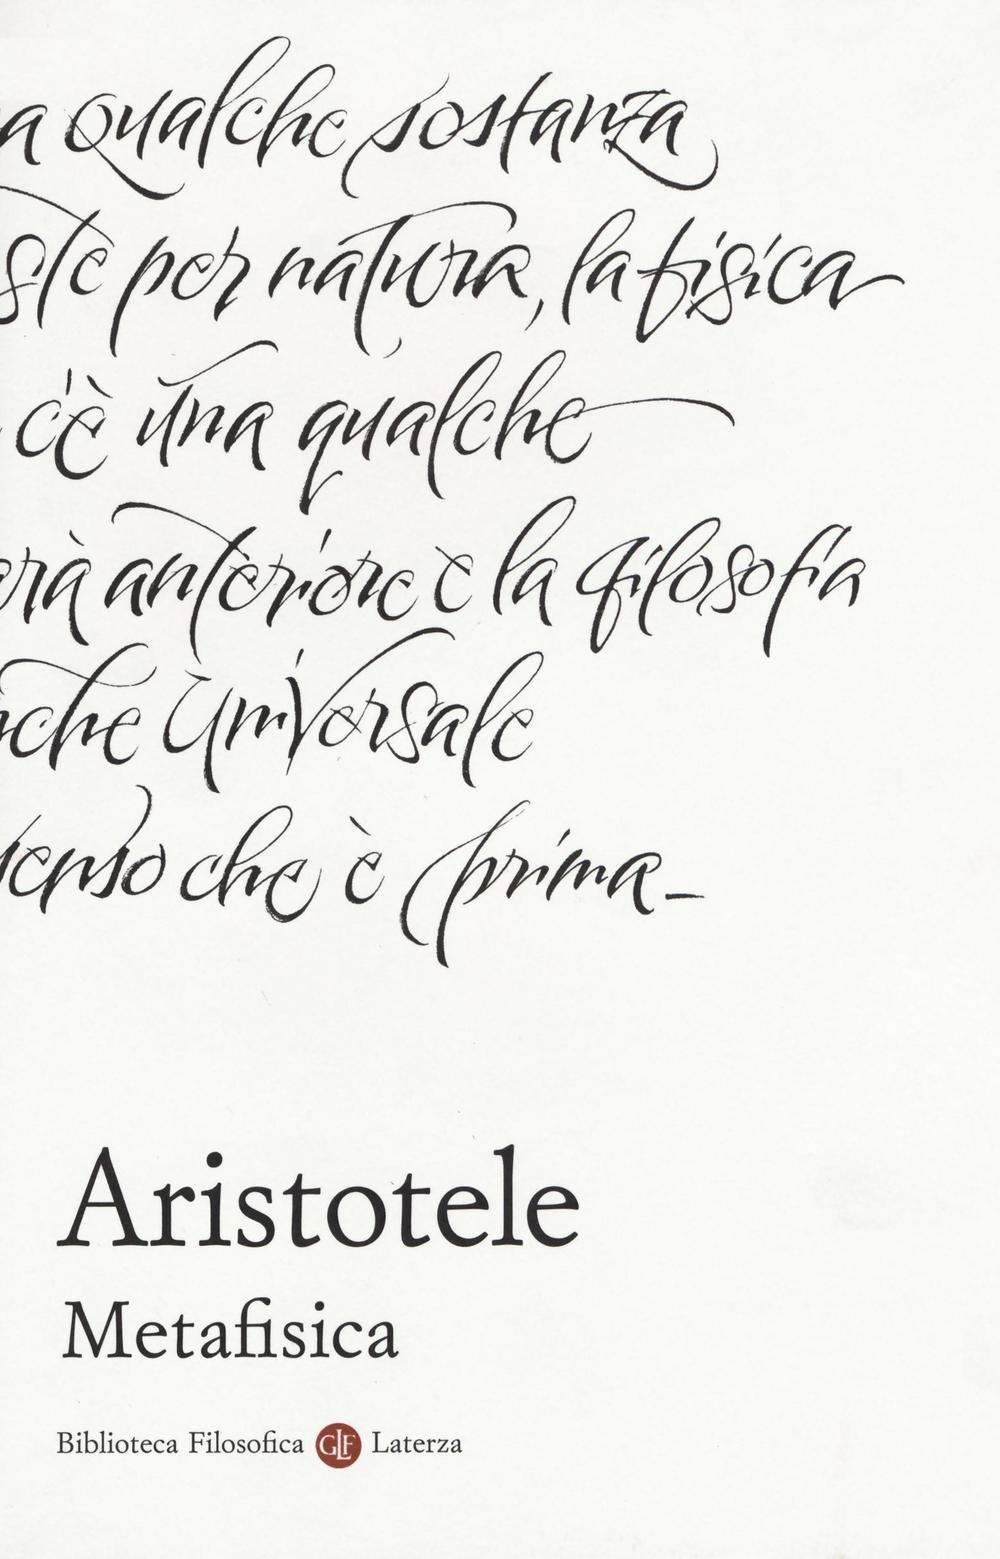 a qualche sostanza
ste per natura, la fisica
c'è una qualche
rà anteriore è la filosofia
nche universale
senso che è prima_
Aristotele
Metafisica
Biblioteca Filosofica GLF Laterza